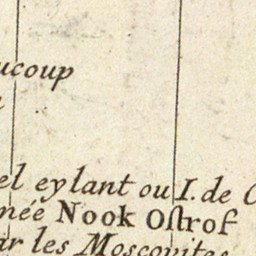 ucoup
el eylant ou I. de
née Nook Oſtrof
ar les Moscovites